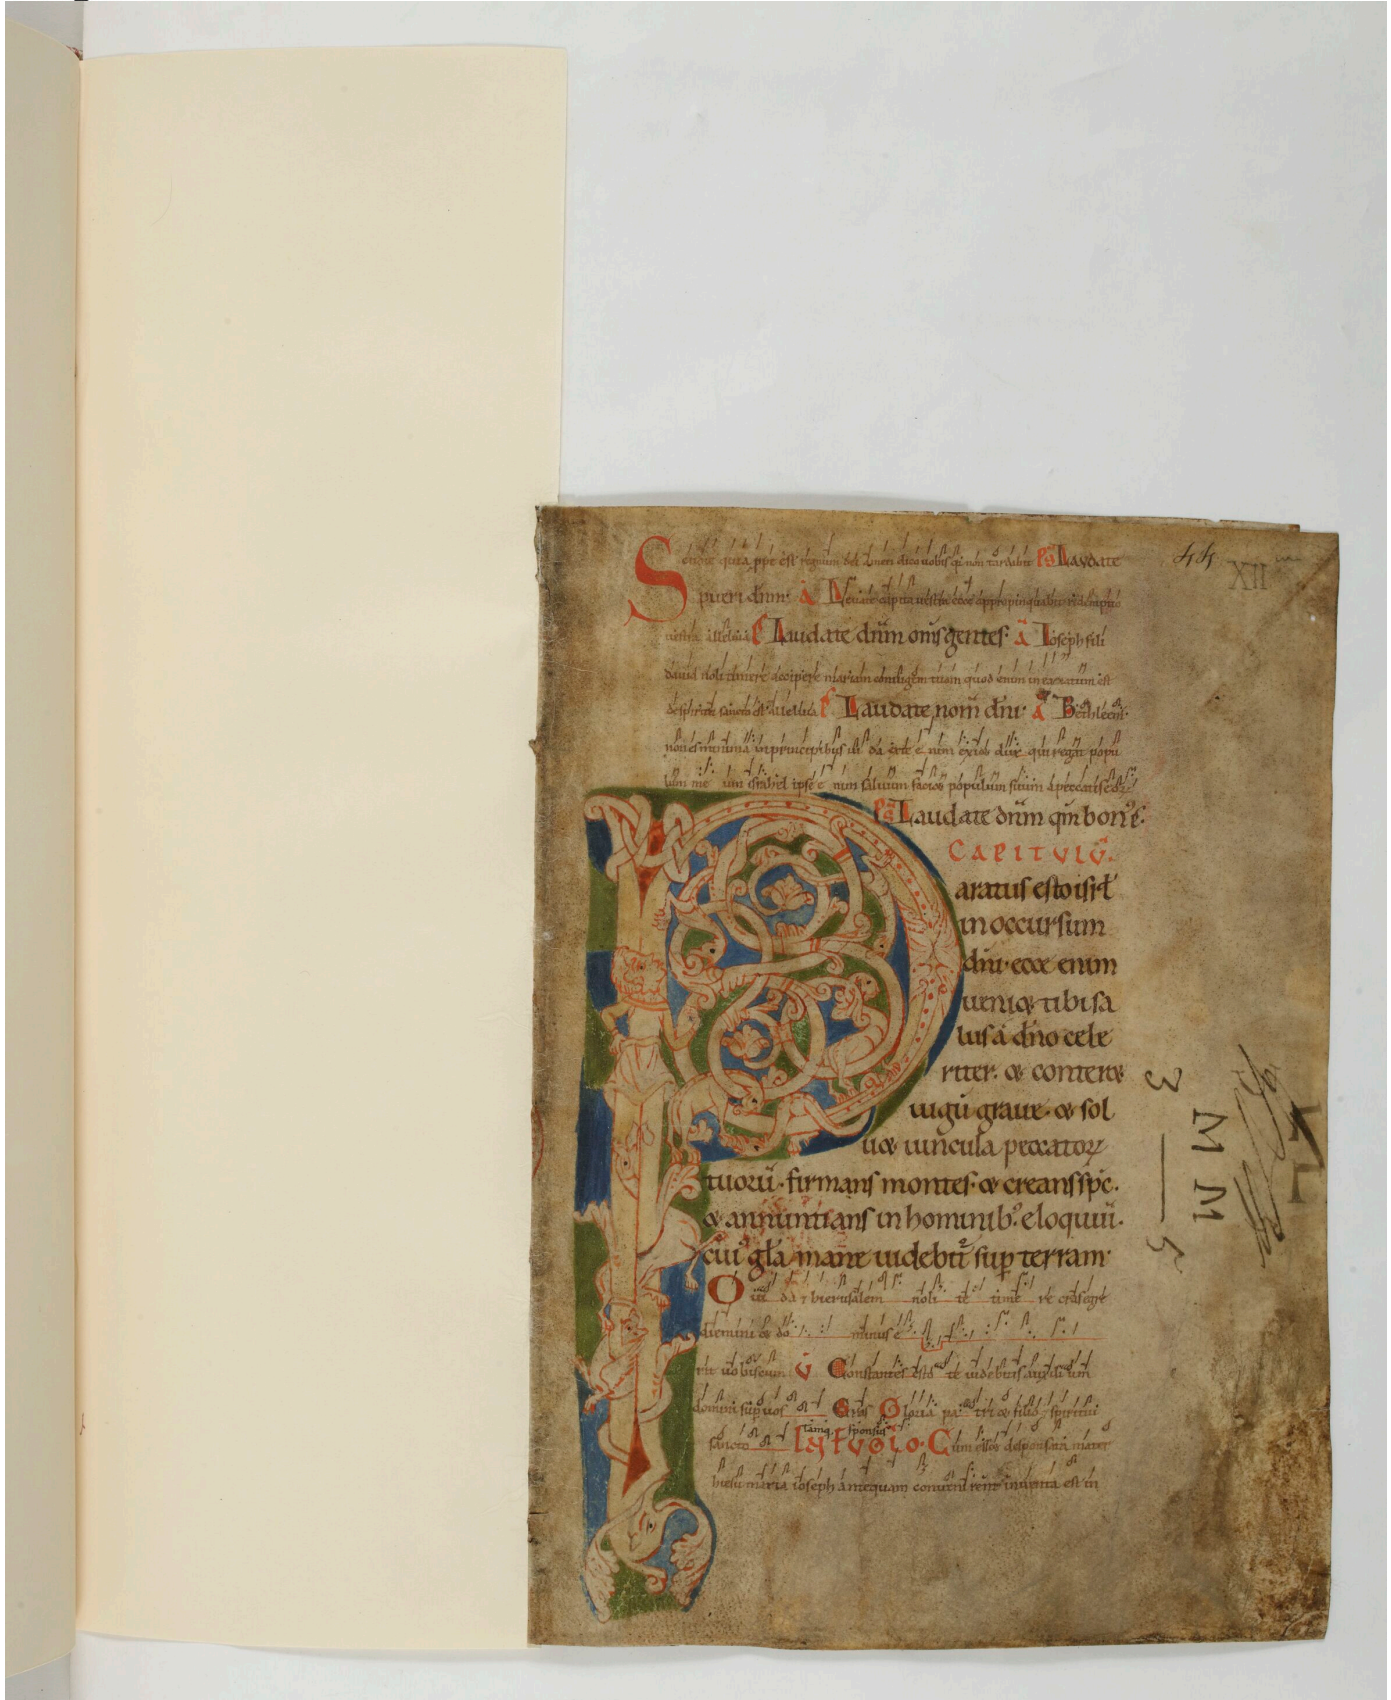 Scitote quia ppe est regnum dei amen dico uobis qr non tardabit ps Laudate
pueri dnm. A Leuate capita uestra ecce appropinquabit redemptio
uestra alleluia p Laudate dnm oms gentes. A Ioseph fili
dauid noli timere accipere mariam coniugem tuam quod enim in ea natum est
de spiritu sancto est alleluia p Laudate nom dni. A Bethleem
non es minima in principibus iuda ex te enim exiet dux qui regat popu
lum meum israhel ipse enim saluum faciet populum suum a peccatis eorum
ps Laudate dnm qm bonus
CAPITVLU.
Paratus esto isrl
in occursum
dni. ecce enim
ueniet tibi sa
lus a dno cele
riter. et conteret
iugu graue. et sol
uet uincula peccatorum
tuoru. firmans montes. et creans spc.
et annuntians in hominib. eloquiu.
cui gla mane uidebit sup terram.
O iuda et hierusalem noli te time re cras egre
diemini et do minus e
rit uobiscum V Constantes esto te uidebitis auxilium
domini sup uos Gloria pa tri et filio et spiritui
tamq sponsus
sancto Cum esset desponsata mater
hiesu maria ioseph antequam conuenirent inuenta est in
44
XII
3 — 5
M M